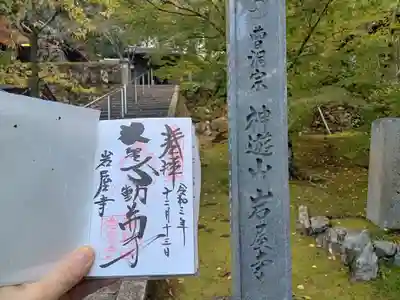 曹洞宗
神遊山岩屋寺
奉拝
令和三年
十二月十三日
大聖不動尊
岩屋寺